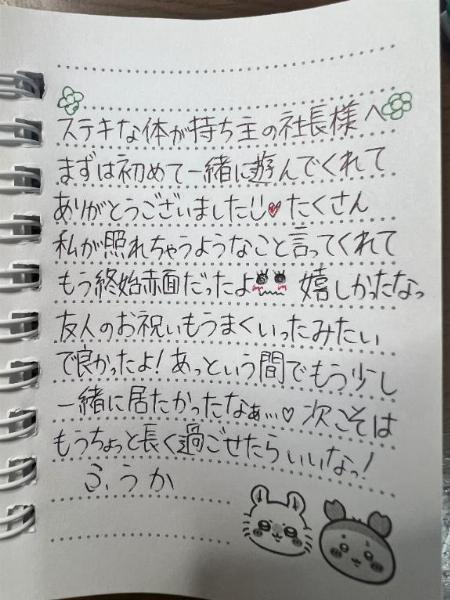 ステキな体が持ち主の社長様へ
まずは初めて一緒に遊んでくれて
ありがとうございました!!♥たくさん
私が照れちゃうようなこと言ってくれて
もう終始赤面だったよ 嬉しかったなっ
友人のお祝いもうまくいったみたい
で良かったよ!あっという間でもう少し
一緒に居たかったなぁ…♡次こそは
もうちょっと長く過ごせたらいいなっ!
ふうか